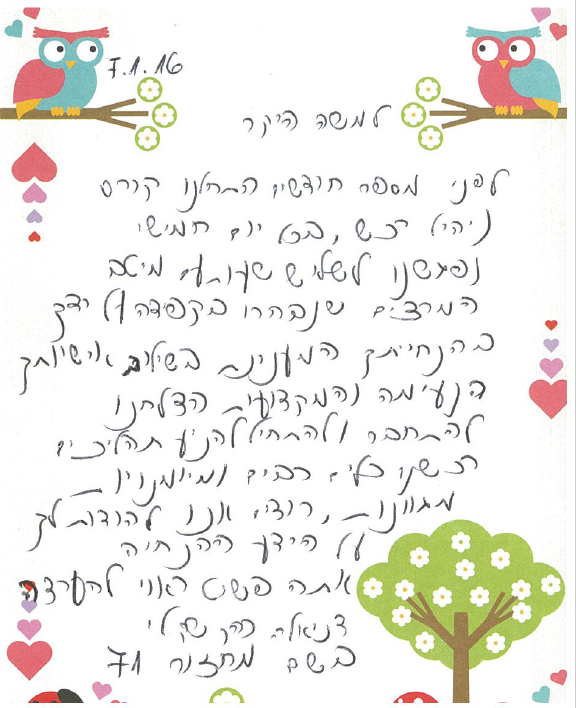 7.1.16
למשה היקר
לפני מספר חודשים התחלנו קורס
ניהול רכש, בכל יום חמישי
נפגשנו לשלוש שעות עם מיטב
המרצים שנבחרו בקפידה על ידך
בהנחייתך המעניינת בשילוב אישיותך
הנעימה והמקצועית הצלחנו
להתחבר ולהתחיל להניע תהליכים
רכשנו כלים רבים ומיומנויות
מגוונות, רוצים אנו להודות לך
על הידע ההנחיה
אתה פשוט ראוי להערכה
דניאלה כהן
בשם מחזור 71